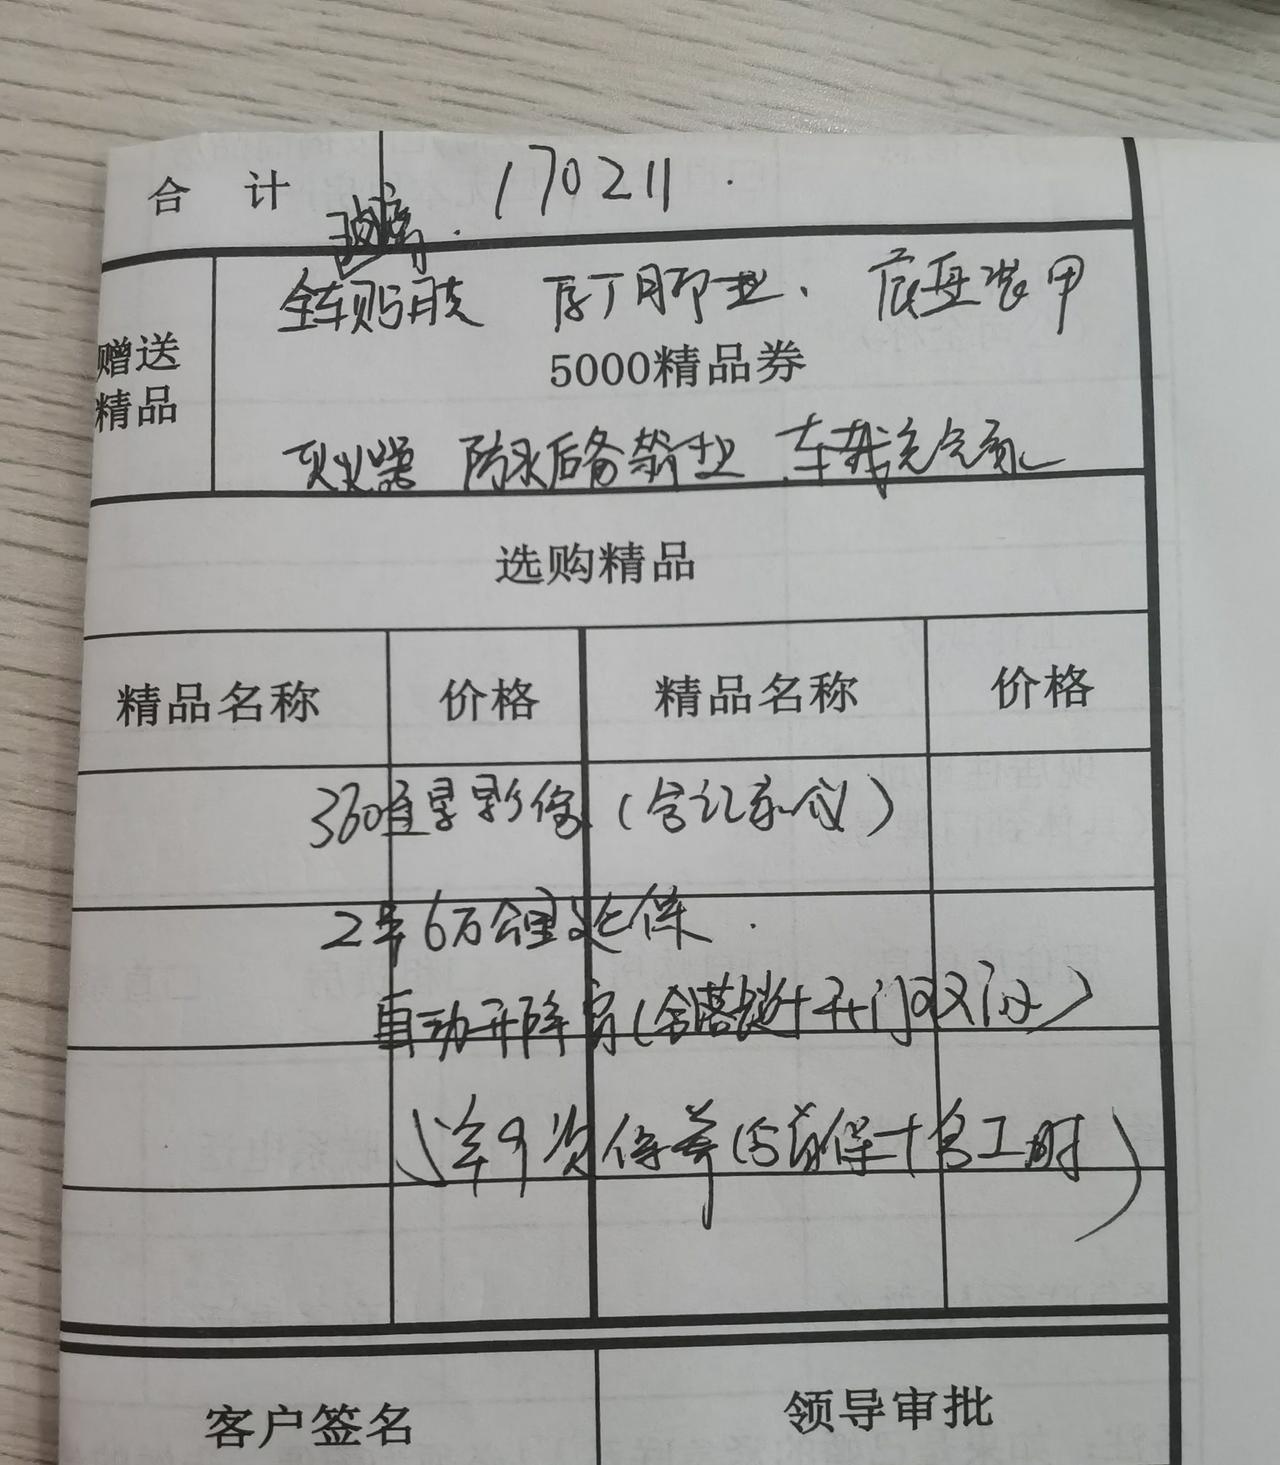 合 计 170211.
玻璃.
全车贴膜 厚丁脚垫、底盘装甲
赠送精品
5000精品券
灭火器 防水后备箱垫 车载充气泵
选购精品
精品名称 价格 精品名称 价格
360度全景影像(含记录仪)
2年6万公里延保.
自动升降窗(含落锁+开门双闪)
(车9次保养(含首保+含工时)
客户签名 领导审批